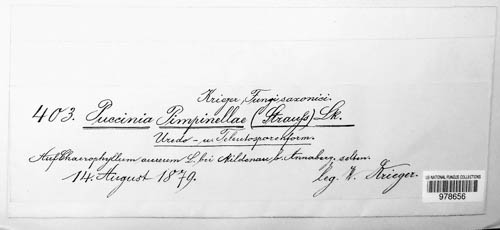 Krieger, Fungi saxonici.
403. Puccinia Pimpinellae (Strauß) Lk.
Uredo- u. Teleutosporenform.
Auf Chaerophyllum aureum L. bei Mildenau b. Annaberg, selten.
14. August 1879. leg. W. Krieger.
US NATIONAL FUNGUS COLLECTIONS
978656